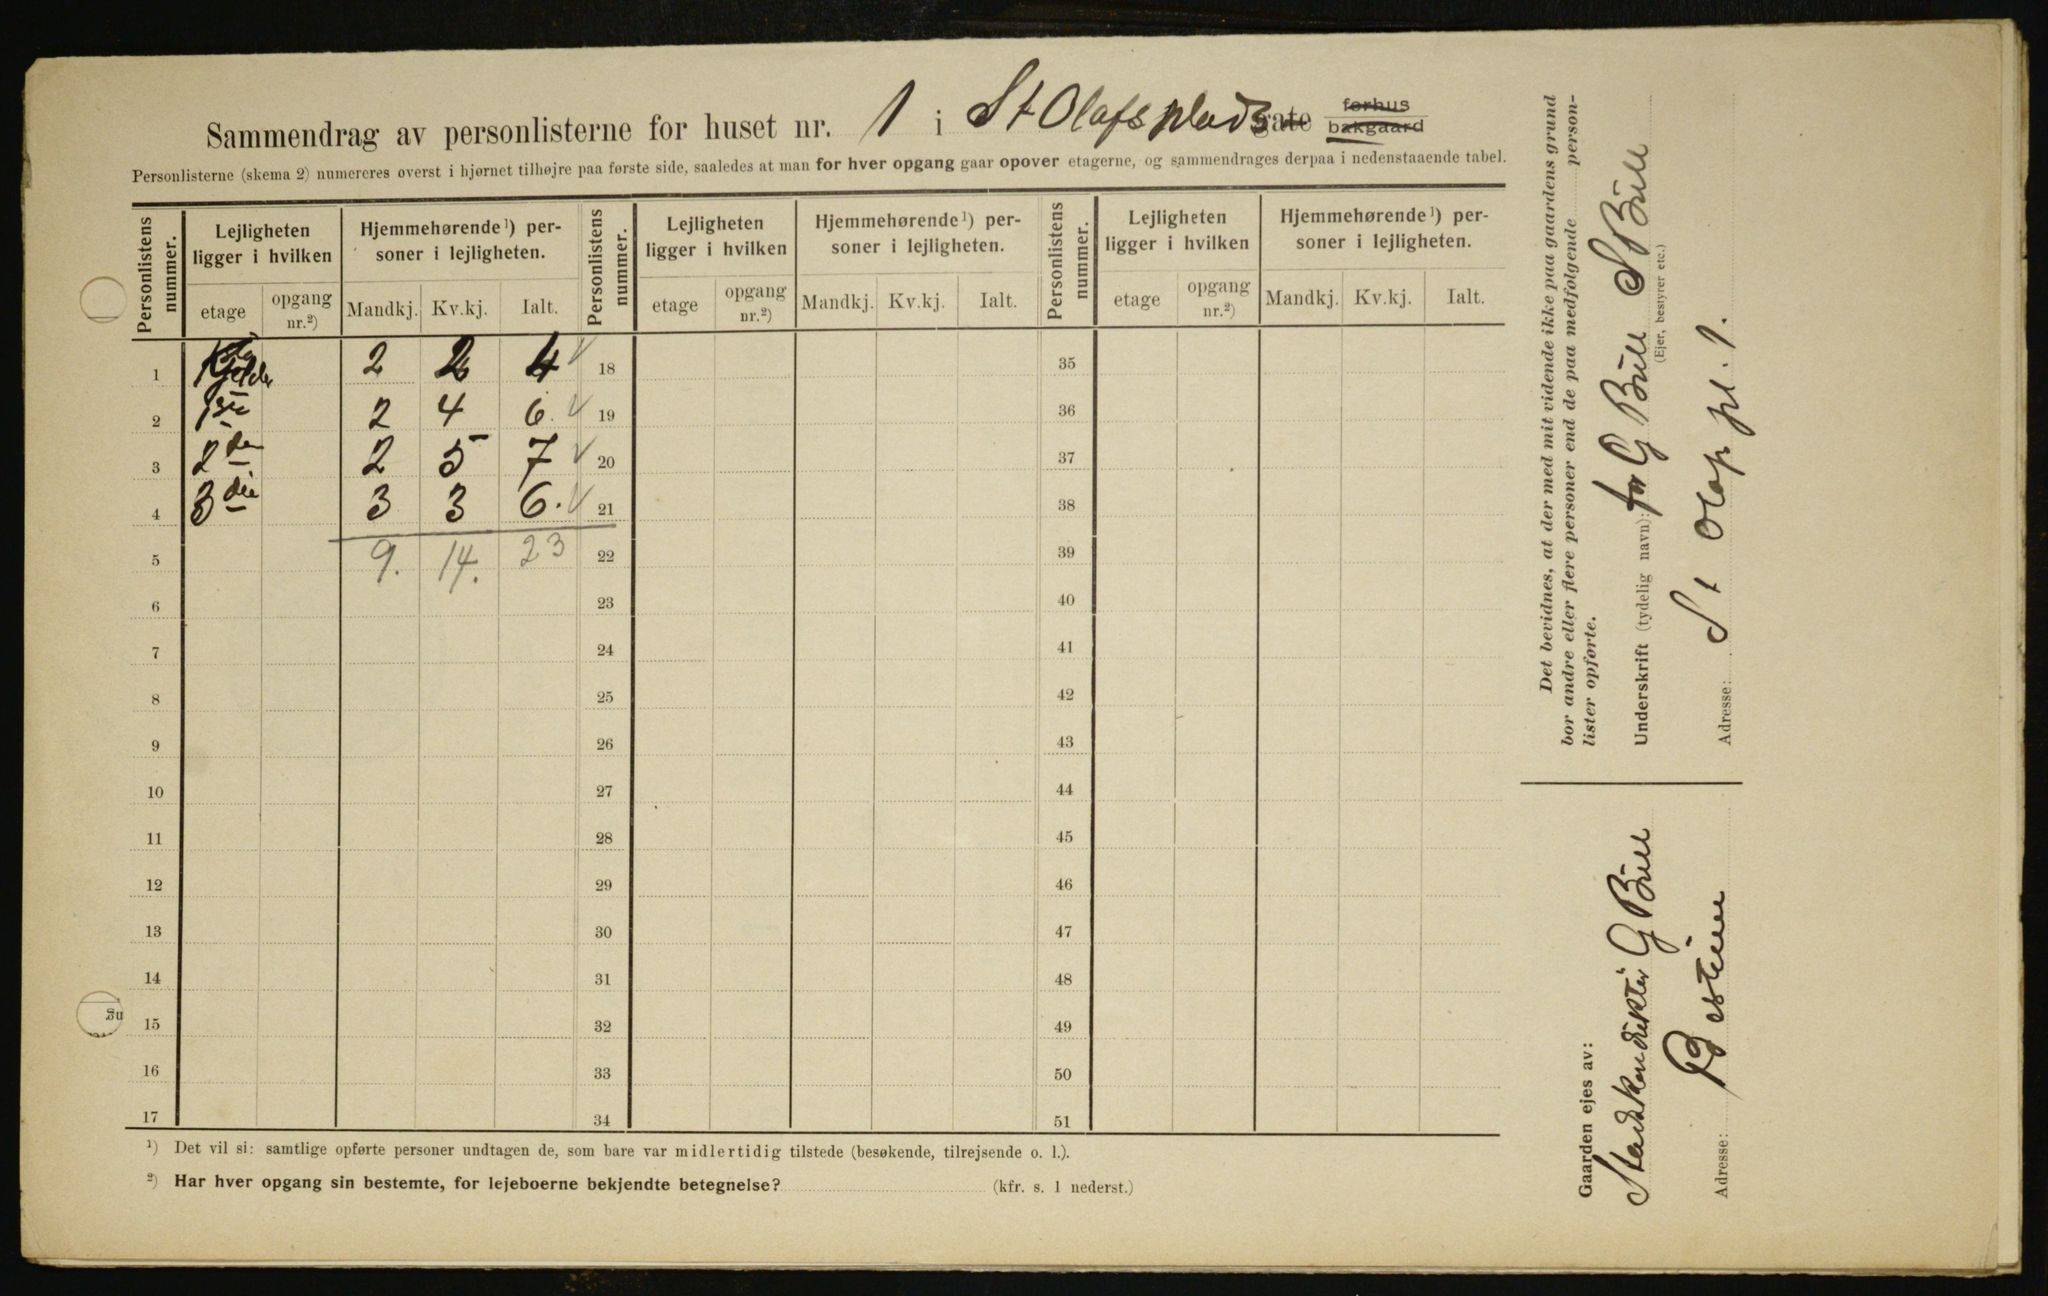 Sammendrag av personlisterne for huset nr. 1 i St Olafs plads gate forhus bakgaard
Personlisterne (skema 2) numereres øverst i hjørnet tilhøjre paa første side, saaledes at man for hver opgang gaar opover etagerne, og sammendrages derpaa i nedenstaaende tabel.
Personlistens nummer. Lejligheten ligger i hvilken Hjemmehørende ¹) personer i lejligheten. Personlistens nummer. Lejligheten ligger i hvilken Hjemmehørende ¹) personer i lejligheten. Personlistens nummer. Lejligheten ligger i hvilken Hjemmehørende ¹) personer i lejligheten.
etage opgang nr.²) Mandkj. Kv.kj. Ialt. etage opgang nr.²) Mandkj. Kv.kj. Ialt. etage opgang nr.²) Mandkj. Kv.kj. Ialt.
1 Kjelder 2 2 4 18 35
2 1ste 2 4 6. 19 36
3 2den 2 5 7 20 37
4 3die 3 3 6. 21 38
5 9. 14. 23 22 39
6 23 40
7 24 41
8 25 42
9 26 43
10 27 44
11 28 45
12 29 46
13 30 47
14 31 48
15 32 49
16 33 50
17 34 51
¹) Det vil si: samtlige opførte personer undtagen de, som bare var midlertidig tilstede (besøkende, tilrejsende o. l.).
²) Har hver opgang sin bestemte, for lejeboerne bekjendte betegnelse? (kfr. s. 1 nederst.)
Det bevidnes, at der med mit vidende ikke paa gaardens grund
bor andre eller flere personer end de paa medfølgende person-
lister opførte.
Underskrift (tydelig navn): for G Bull S Bull
(Ejer, bestyrer etc.)
Adresse: St Olafs pl. 1.
Gaarden ejes av:
Stadskonduktør G Bull
Adresse: